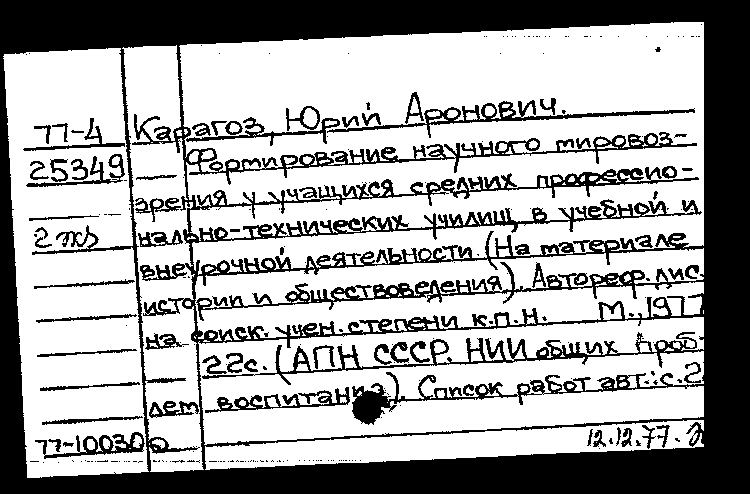 77-4 Карагоз, Юрий Аронович.
25349 Формирование научного мировоз-
зрения у учащихся средних профессио-
2 экз нально-технических училищ в учебной и
внеурочной деятельности (На материале
истории и обществоведения). Автореф. дис.
на соиск. учен. степени к.п.н. М., 1977
22с. (АПН СССР. НИИ общих проб-
лем воспитания). Список работ авт.: с.2
77-10030 12.12.77.